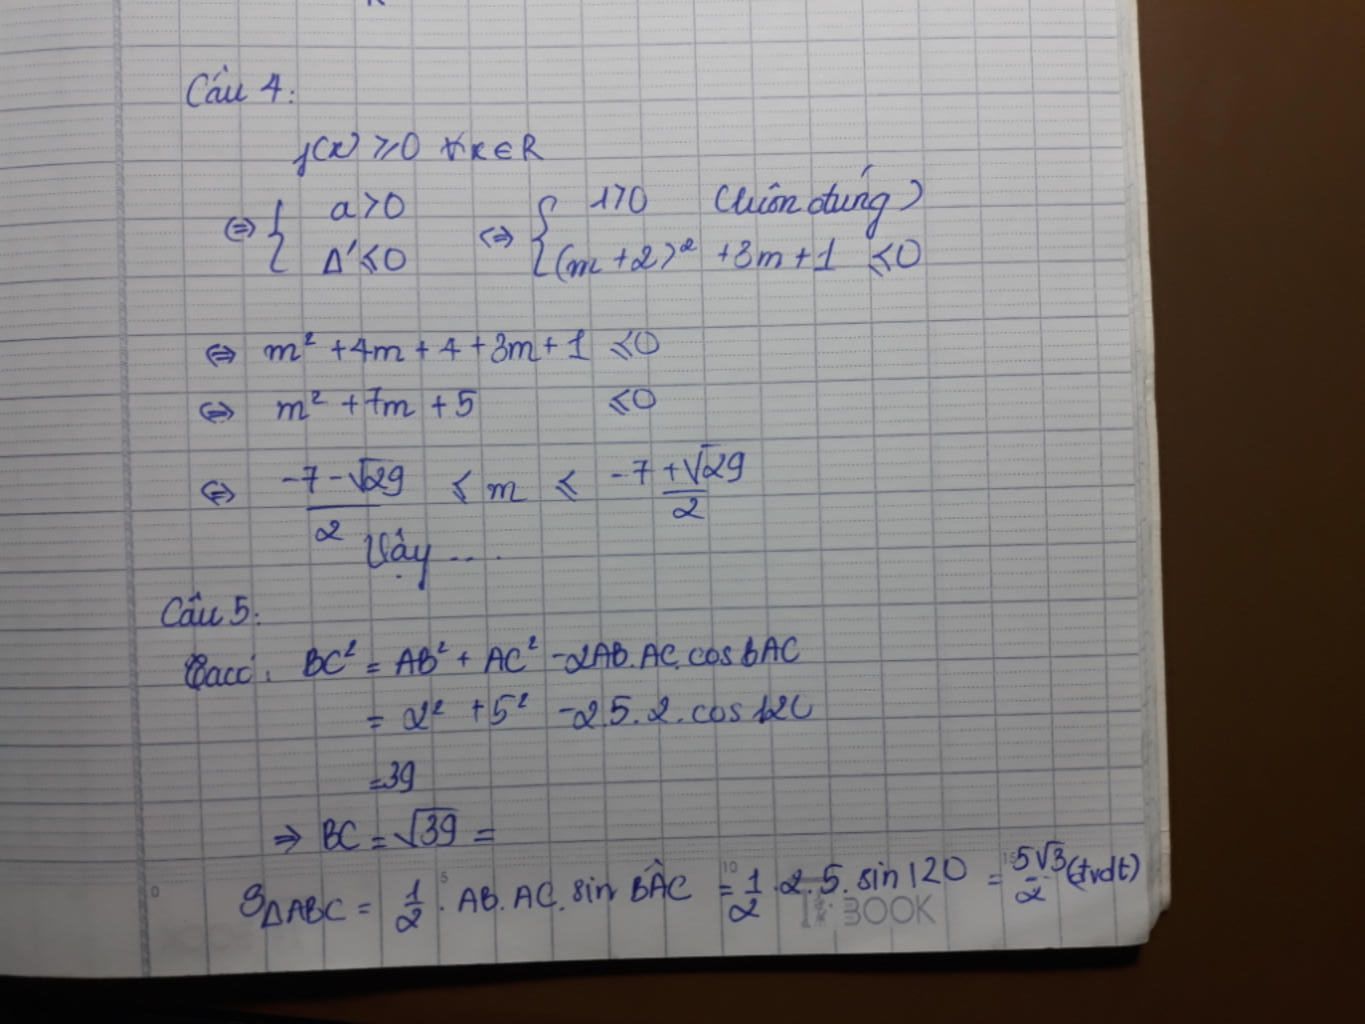 Câu 4:
f(x) ⩾0 ∀x∈R
⇔ { a>0 ⇔ { 1>0 (luôn đúng)
Δ' ⩽0 (m+2)² +3m+1 ⩽0
⇔ m² +4m+4+3m+1 ⩽0
⇔ m² +7m +5 ⩽0
⇔ (-7-√29)/2 ⩽ m ⩽ (-7+√29)/2
Vậy ....
Câu 5:
BC² = AB² + AC² -2AB.AC.cosBAC
= 2² +5² -2.5.2.cos 120
=39
⇒ BC = √39 =
S△ABC = 1/2 . AB.AC. sin BÂC = 1/2 .2.5. sin120 = 5√3/2 (đvdt)
BOOK
5 10 15
0